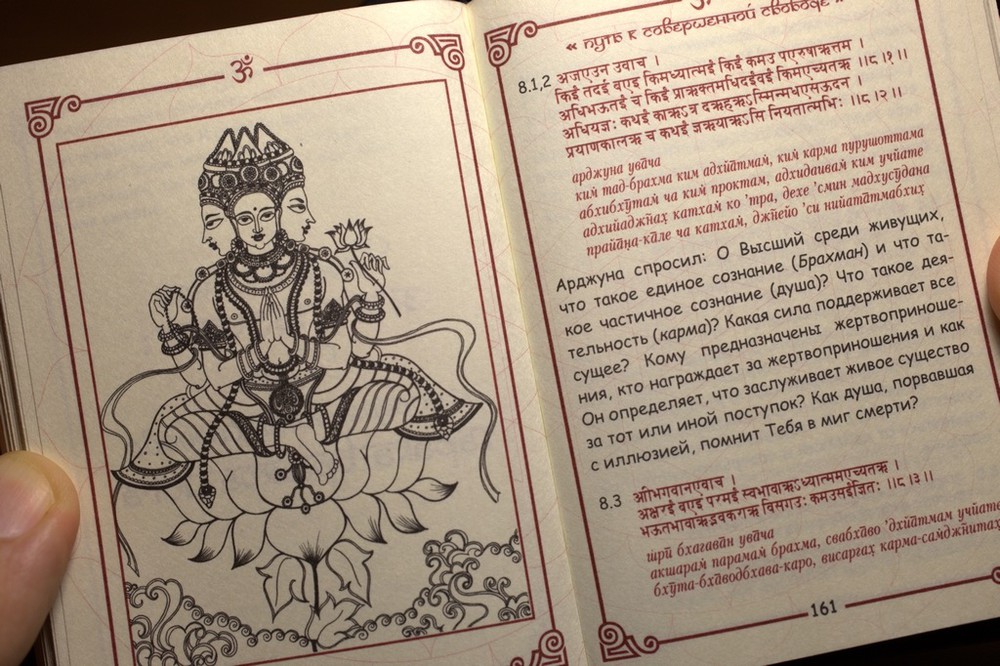 ॐ
« путь к совершенной свободе »
8.1,2 अजएउन उवाच ।
किइं तदइं वएइ किमध्यात्मइं किइं कमउ पएरुषाऋतम ।
अधिभऊतइं च किइं प्राऋक्तमधिदइंवइं किमएच्यतऋ ।।८।१।।
अधियज्ञः कथइं काऋऽत्र दऋहऋऽस्मिन्मधएसऊदन ।
प्रयाणकालऋ च कथइं ज्ञऋयाऋऽसि नियतात्मभिः ।।८।२।।
арджуна ува̄ча
ким̇ тад-брахма ким адхйа̄тмам̇, ким̇ карма пурушоттама
абхибхӯтам̇ ча ким̇ проктам, адхидаивам̇ ким учйате
адхийаджн̃ах̣ катхам̇ ко 'тра, дехе 'смин мадхусӯдана
прайа̄н̣а-ка̄ле ча катхам̇, джн̃ейо 'си нийата̄тмабхих̣
Арджуна спросил: О Высший среди живущих,
что такое единое сознание (Брахман) и что та-
кое частичное сознание (душа)? Что такое дея-
тельность (карма)? Какая сила поддерживает все
сущее? Кому предназначены жертвоприноше-
ния, кто награждает за жертвоприношения и как
Он определяет, что заслуживает живое существо
за тот или иной поступок? Как душа, порвавшая
с иллюзией, помнит Тебя в миг смерти?
8.3
अक्षरइं वएइ परमइं स्वभावाऋऽध्यात्ममएच्यतऋ ।
भऊतभावाऋद्भवकराऋ विसगउः कमउसइंज्ञितः ।।८।३।।
ш́рӣ бхагава̄н ува̄ча
акшарам̇ парамам̇ брахма, свабха̄во 'дхйа̄тмам учйате
бхӯта-бха̄водбхава-каро, висаргах̣ карма-сам̇джн̃итах̣
161